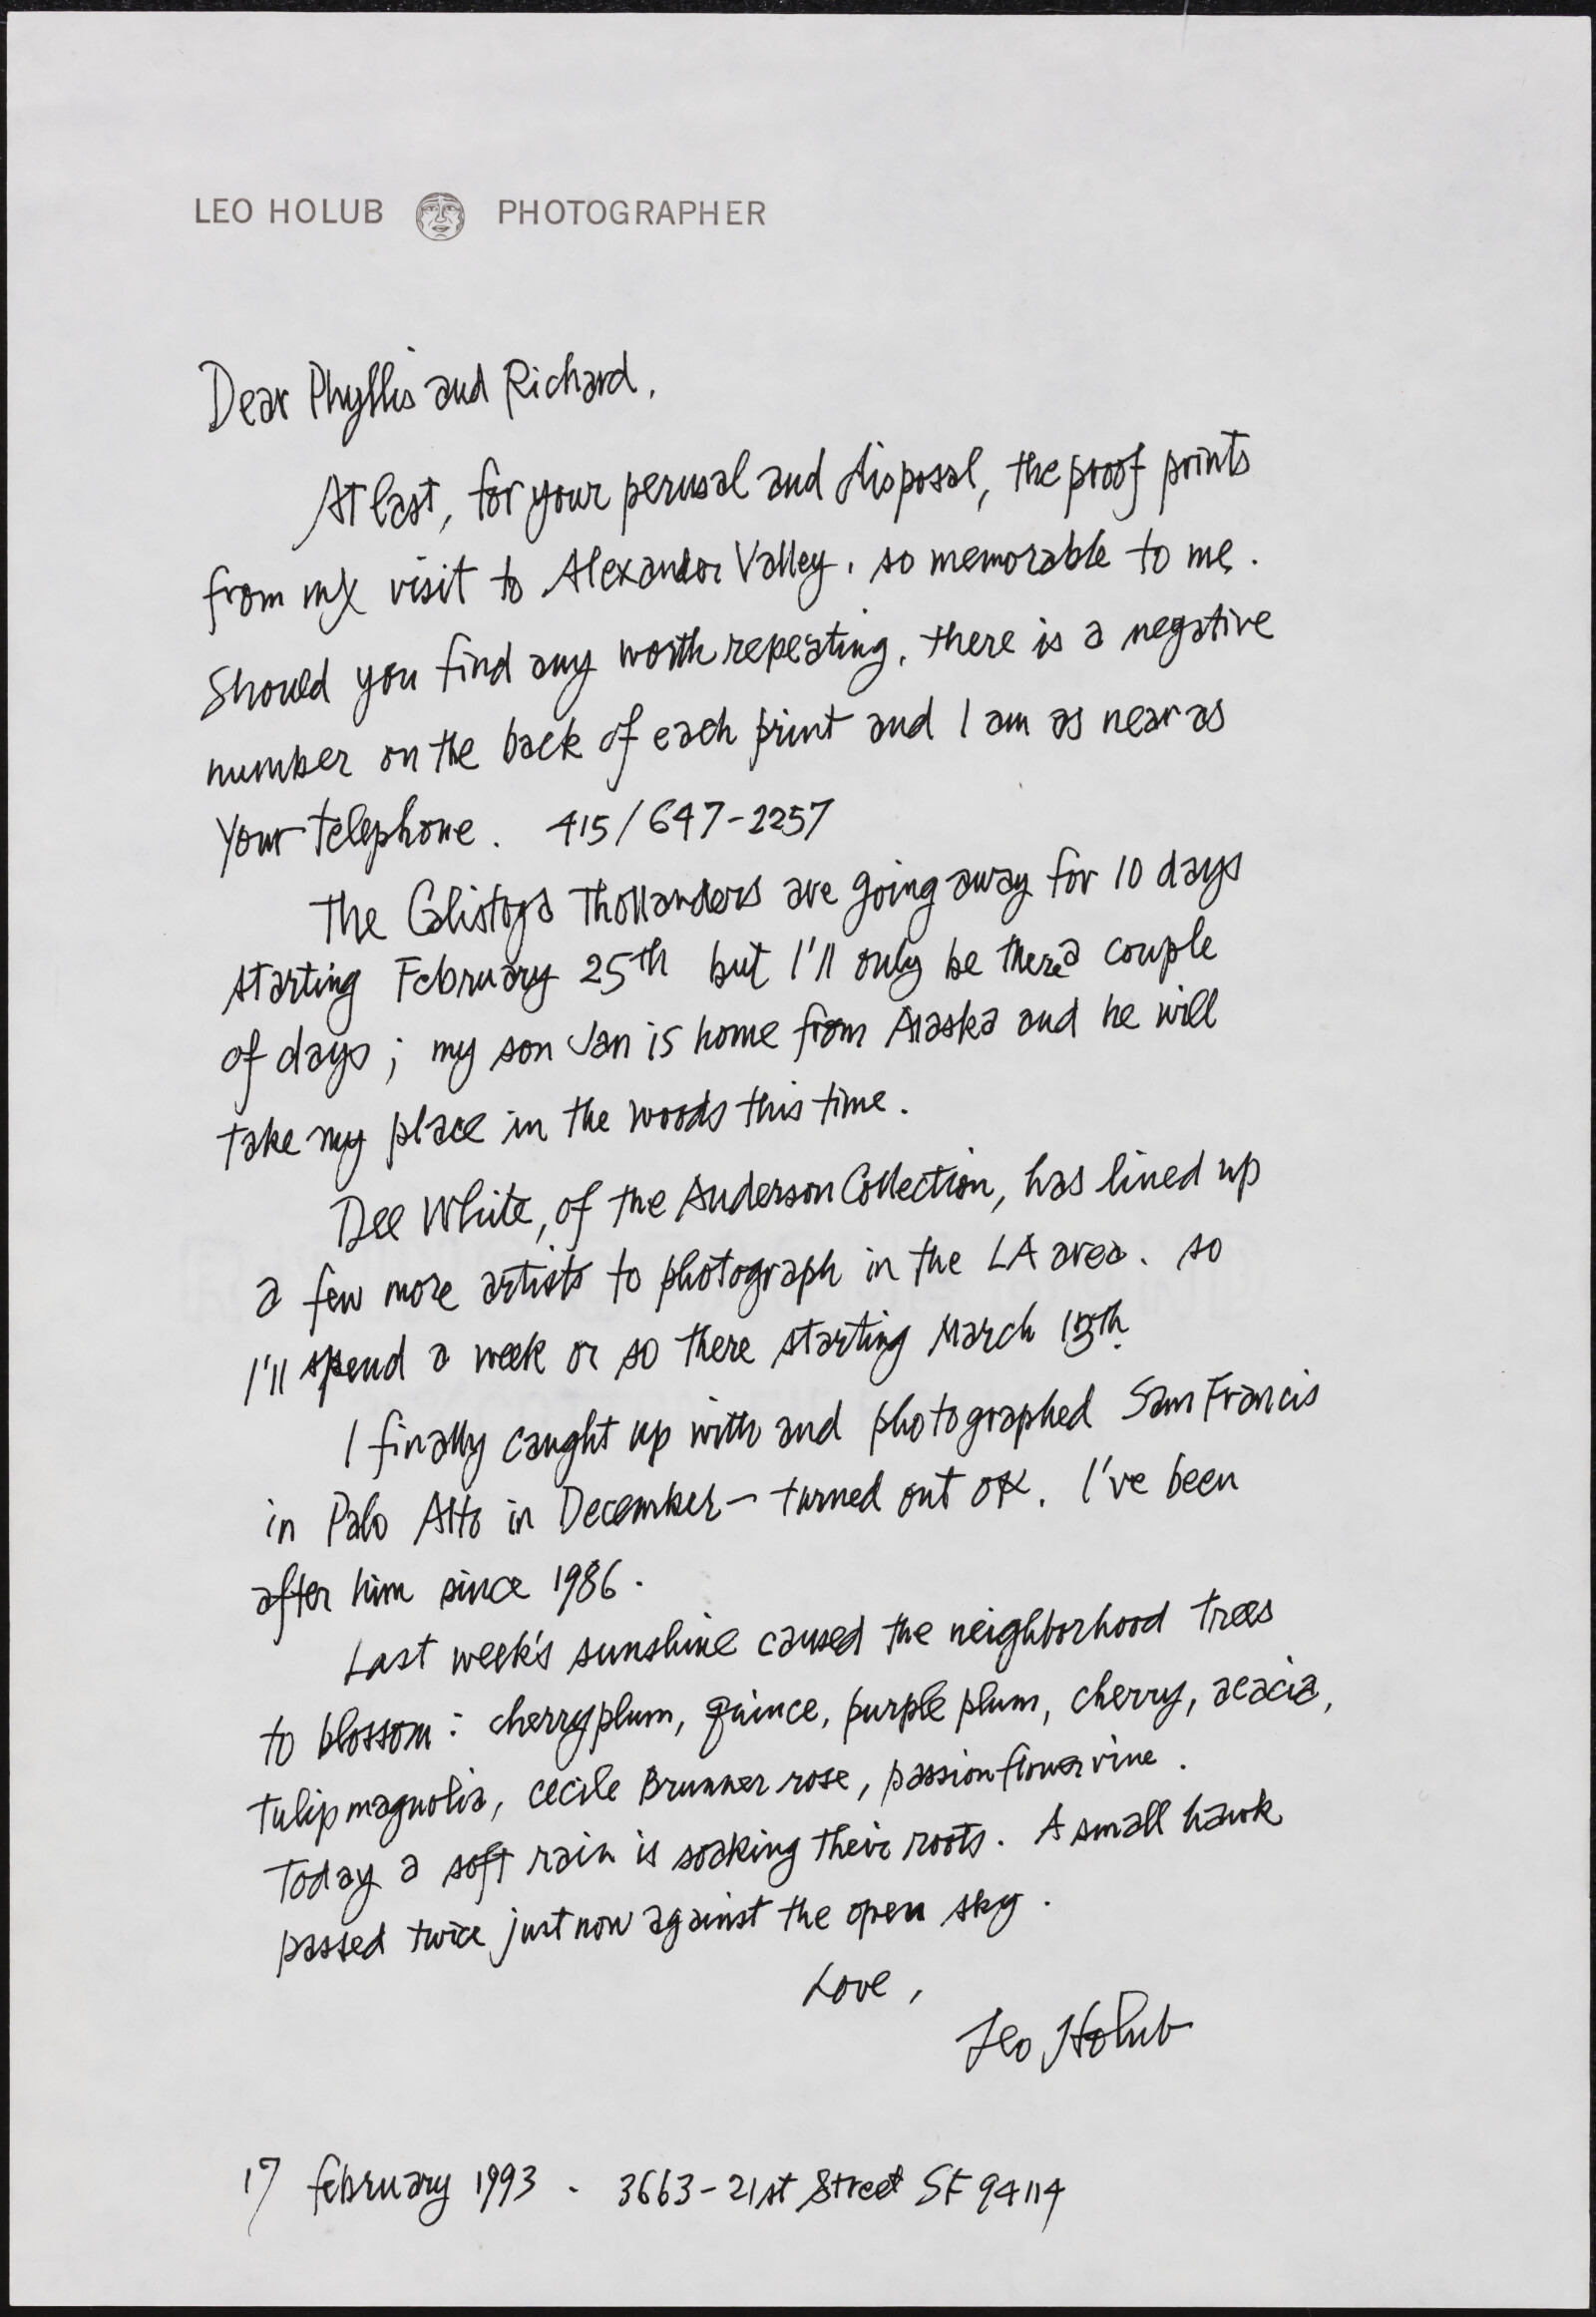 LEO HOLUB PHOTOGRAPHER
Dear Phyllis and Richard,
At last, for your perusal and disposal, the proof prints
from my visit to Alexander Valley, so memorable to me.
Should you find any worth repeating, there is a negative
number on the back of each print and I am as near as
your telephone. 415/647-2257
The Calistoga Thollanders are going away for 10 days
starting February 25th but I'll only be there a couple
of days; my son Jan is home from Alaska and he will
take my place in the woods this time.
Dee White, of the Anderson Collection, has lined up
a few more artists to photograph in the LA area. So
I'll spend a week or so there starting March 15th.
I finally caught up with and photographed Sam Francis
in Palo Alto in December — turned out OK. I've been
after him since 1986.
Last week's sunshine caused the neighborhood trees
to blossom: cherryplum, quince, purple plum, cherry, acacia,
tulip magnolia, cecile Brunner rose, passionflower vine.
Today a soft rain is soaking their roots. A small hawk
passed twice just now against the open sky.
Love,
Leo Holub
17 february 1993 - 3663-21st Street SF 94114